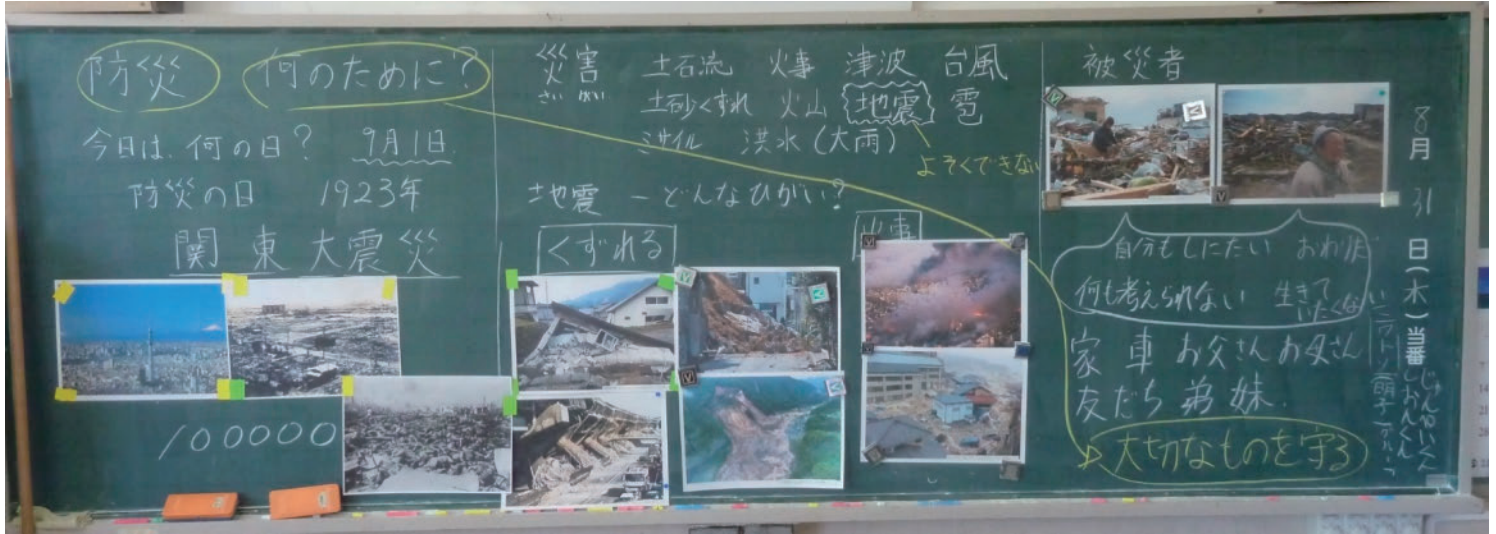 防災 何のために？
今日は、何の日？ 9月1日
防災の日 1923年
関東大震災
100000
災害 土石流 火事 津波 台風
さい がい
土砂くずれ 火山 地震 雹
ミサイル 洪水(大雨)
よそくできない
地震 - どんなひがい？
くずれる 火事
被災者
自分もしにたい おわりだ
何も考えられない 生きて
いたくない
家 車 お父さん お母さん
友だち 弟 妹
大切なものを守る
8月31日(木)当番
ニワトリ